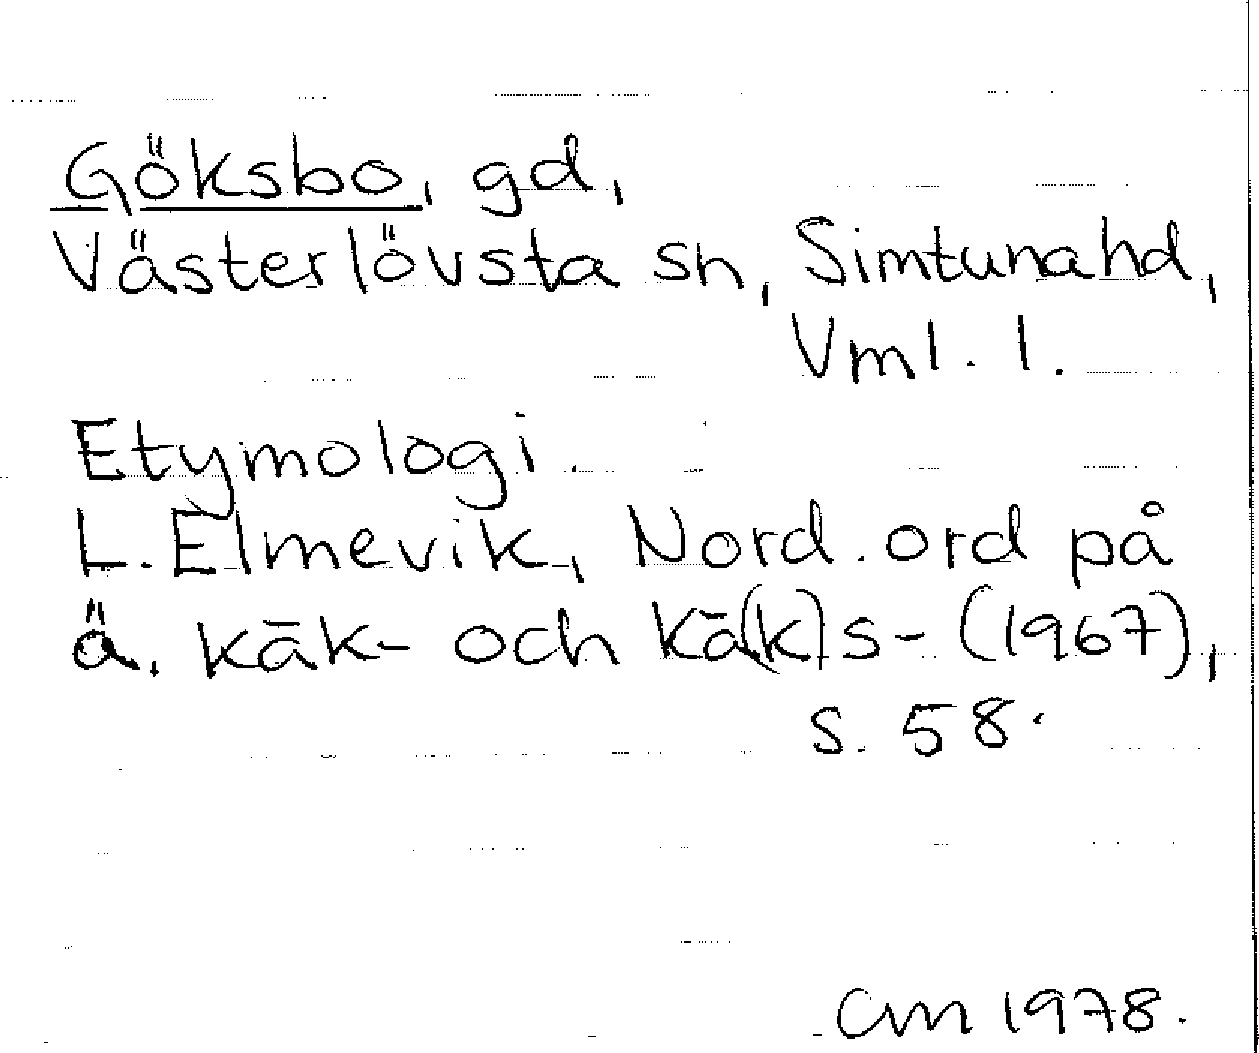 Göksbo, gd,
Västerlövsta sn, Simtuna hd,
Vml. l.
Etymologi.
L. Elmevik, Nord. ord på
ä. kāk- och kā(k)s- (1967),
s. 58.
CM 1978.